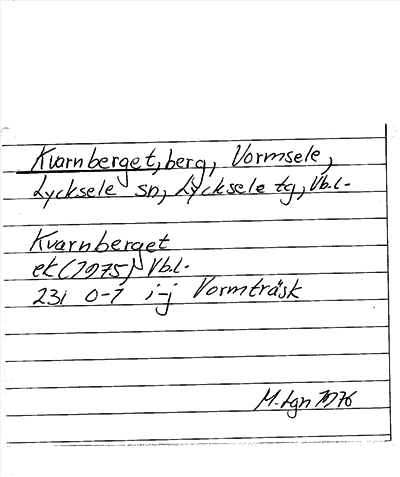 Kvarnberget, berg, Vormsele,
Lycksele sn, Lycksele tg, Vb.l.
Kvarnberget
ek (1975) Vb.l.
23i 0-1 i-j Vormträsk
M. Lgn 1976